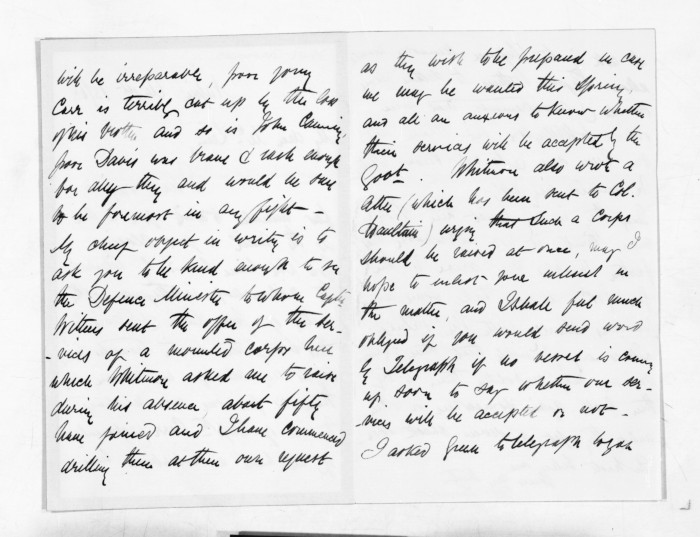 will be irreparable, poor young
Carr is terribly cut up by the loss
of his brother and so is John Canning
poor Davis was brave & rash enough
for any thing and would be sure
to be foremost in any fight –
My chief object in writing is to
ask you to be kind enough to see
the Defence Minister to whom Captn
Withers sent the offer of the ser-
-vices of a mounted corps here
which Whitmore asked me to raise
during his absence, about fifty
have joined and I have commenced
drilling them at their own request
as they wish to be prepared in case
we may be wanted this Spring,
and all are anxious to know whether
their services will be accepted by the
Govt. Whitmore also wrote a
letter (which has been sent to Col.
Haultain) urging that such a Corps
should be raised at once, may I
hope to enlist your interest in
the matter, and I shall feel much
obliged if you would send word
by Telegraph if no vessel is coming
up soon to say whether our ser-
vices will be accepted or not –
I asked Green to telegraph